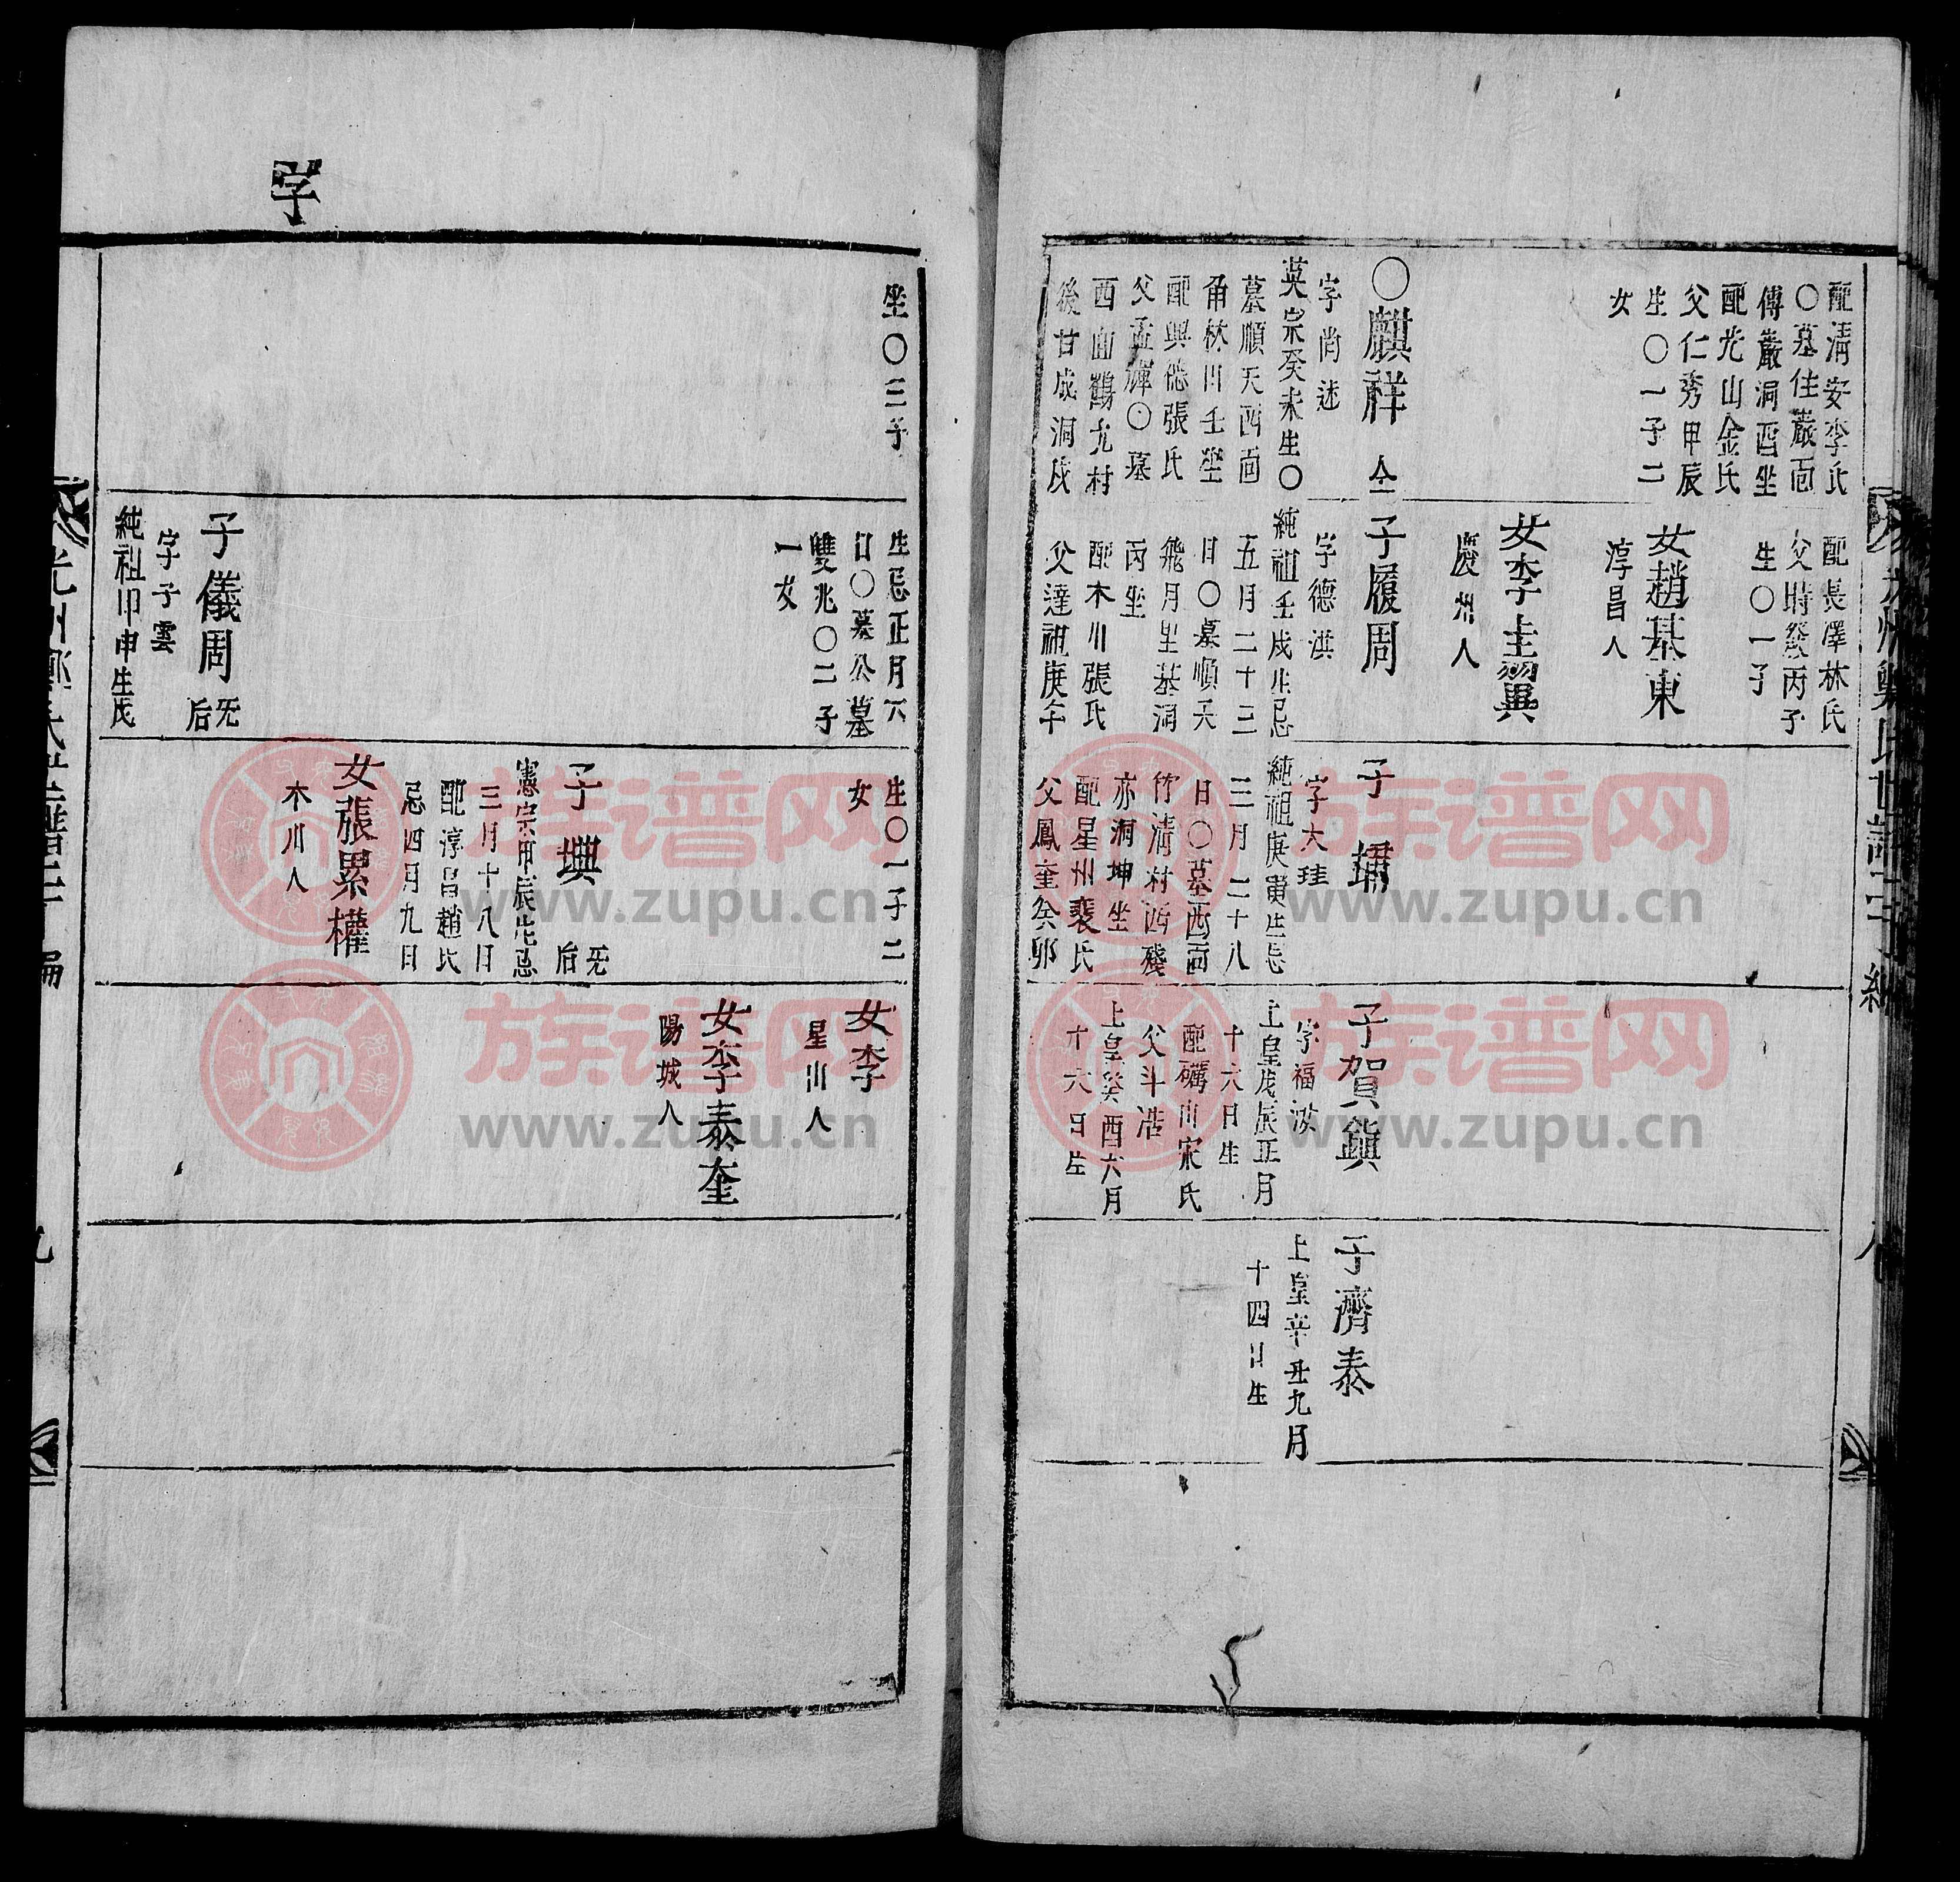 配淸安李氏
〇墓佳巖面
傅巖洞酉坐
配光山金氏
父仁秀甲辰
生〇一子二
女
〇麒祥 仝
字尚述
英宗癸未生〇
墓順天西面
甬秋川壬坐
配興德張氏
父孟禪〇墓
西面鶴九村
後甘成洞戌
配長澤林氏
父時發丙子
生〇一子
女趙基東
淳昌人
女李圭翼
慶州人
子履周
字德洪
純祖壬戌生忌
五月二十三
日〇墓順天
飛月里基洞
丙坐
配木川張氏
父達祖庚午
子 埇
字大珪
純祖庚寅生忌
三月二十八
日〇墓西面
竹淸村西殘
亦洞坤坐
配星州裴氏
父鳳奎癸卯
子賀鎭
字福汝
上皇戊辰正月
十六日生
配礪山宋氏
父斗浩
上皇癸酉六月
十六日生
子濟泰
上皇辛丑九月
十四日生
光州鄭氏世譜
編
八
字
坐〇三子
生忌正月六
日〇墓公墓
雙兆〇二子
一女
子儀周 无后
字子雲
純祖甲申生戊
生〇一子二
女
子㙉 无后
憲宗甲辰生忌
三月十八日
配淳昌趙氏
忌四月九日
女張累權
木川人
女李
星山人
女李泰奎
陽城人
光州鄭氏世譜
編
九
族谱网
www.zupu.cn
族谱网
www.zupu.cn
族谱网
www.zupu.cn
族谱网
www.zupu.cn